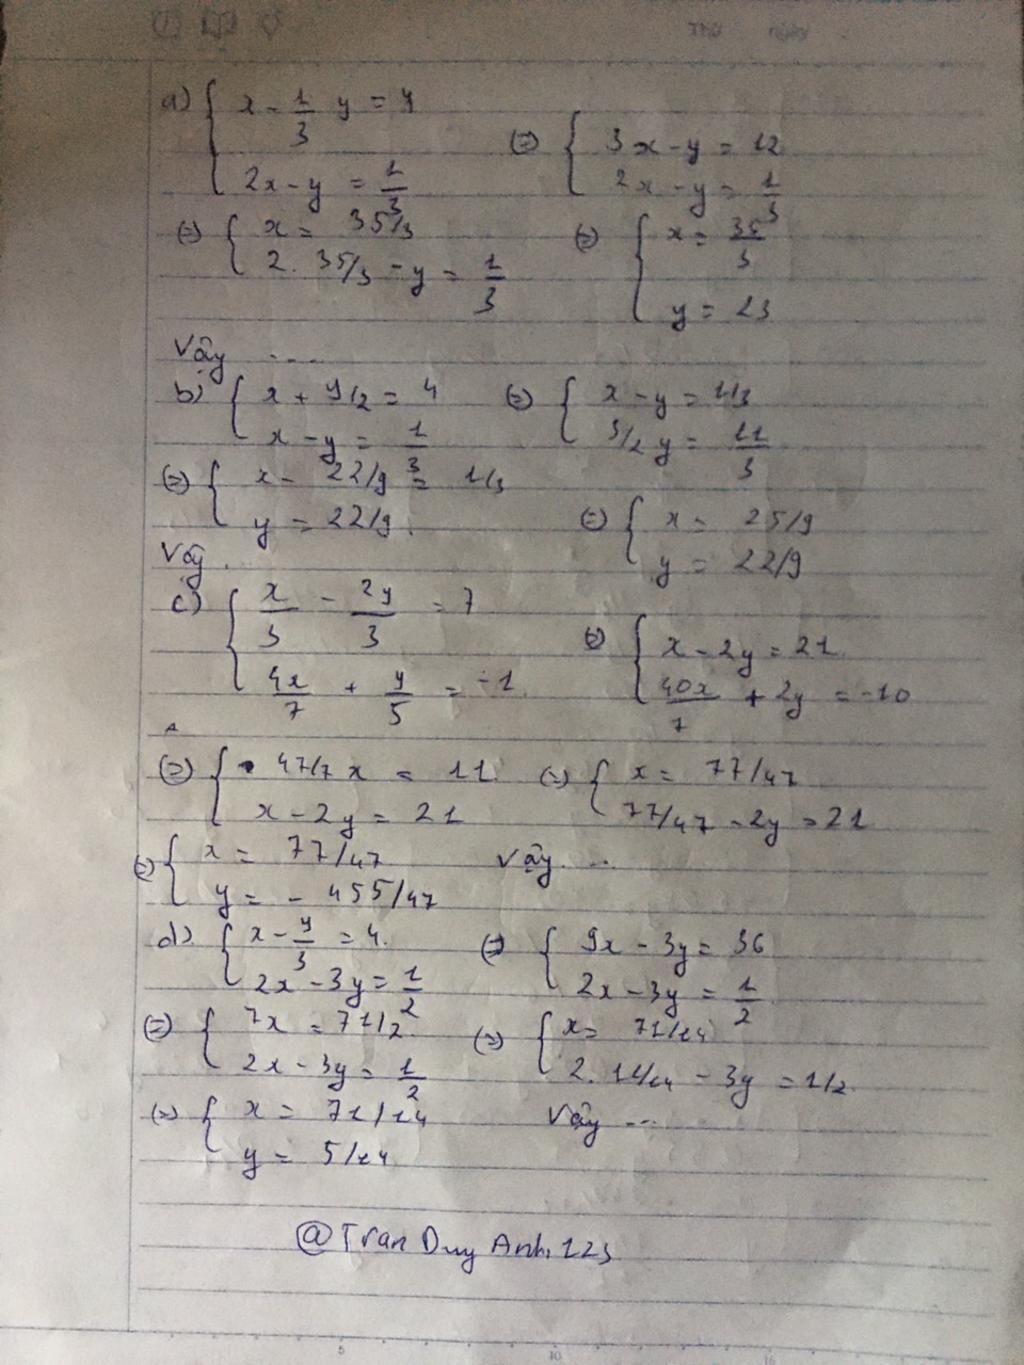 THỨ NGÀY
a) { x - 1/3 y = 4
2x - y = 1/3
(=) { 3x - y = 12
2x - y = 1/3
(=) { x = 35/3
2. 35/3 - y = 1/3
(=) { x = 35/3
y = 23
Vậy ....
b) { x + y/2 = 4
x - y = 1/3
(=) { x - y = 1/3
3/2 y = 11/3
(=) { x - 22/9 = 1/3
y = 22/9
(=) { x = 25/9
y = 22/9
Vậy .
c) { x/3 - 2y/3 = 7
4x/7 + y/5 = -1
(=) { x - 2y = 21
40x/7 + 2y = -10
(=) { 47/7 x = 11
x - 2y = 21
(=) { x = 77/47
77/47 - 2y = 21
(=) { x = 77/47
y = - 455/47
Vậy ...
d) { x - y/3 = 4.
2x - 3y = 1/2
(=) { 9x - 3y = 36
2x - 3y = 1/2
(=) { 7x = 71/2
2x - 3y = 1/2
(=) { x = 71/14
2. 71/14 - 3y = 1/2
(=) { x = 71/14
y = 45/14
Vậy ...
@Tran Duy Anh.123
5 10 15